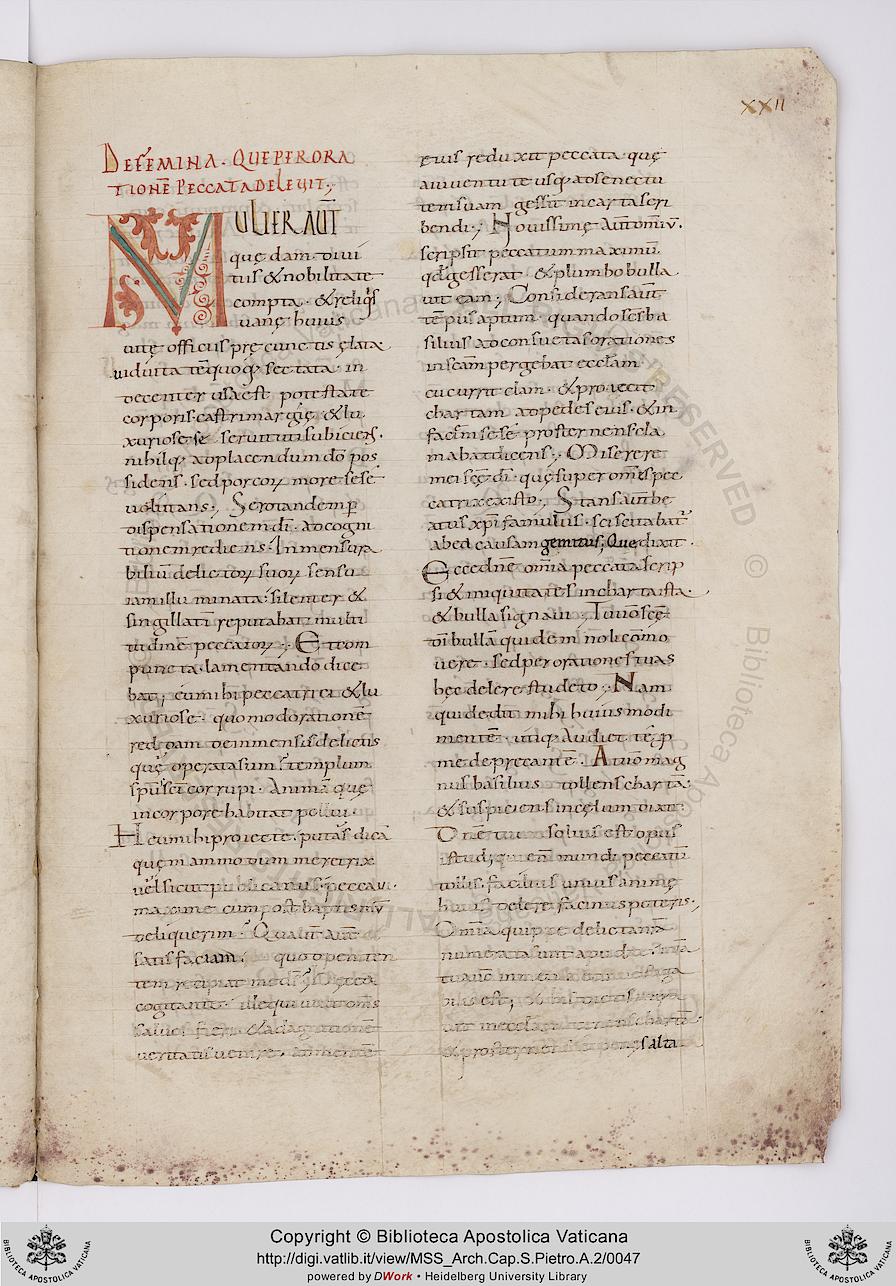 XXII
DEFEMINA. QUEPERORA
TIONĒ PECCATADELEVIT;
MULIER AUT̄
quędam diui
tiis &nobilitate
compta. &reliq̨s
uanę huius
uitę officiis pre cunctis ęlata
uiduita tēquoq; sectata. in
decenter usa est potestate
corporis. castrimargię. &lu
xuriosesę seruituti subiciens.
nihilq; adplacendum dō pos
sidens. sedporcoꝝ more sese
uolutans; Serotandem ꝑ
dispensationem dī. adcogni
tionem rediens. Inmensura
biliū delictoꝝ suoꝝ sensu
iam illuminata. silenter &
singillatī reputabat multi
tudinē peccatoꝝ; Etcom
puncta. lamentando dice
bat; eumihi peccatrici &lu
xuriose. quomodo rationē
reddam deinmensis delictis
quę operatasum? templum
sp̄us sc̄i corrupi. Animā quę
incorpore habitat pollui.
Heumihi proiecte. putas dicā
quęm ammodum meretrix
uel sicut publicanus. peccaui.
maxime cum post baptismū
deliquerim? Qualit̄ autē
satis faciam? quo open ten
tem
cogitante. illequi uult om̄s
saluos fieri. &adagnitionē
ueritatis uenire. inmentē
eius reduxit peccata quę
aiuuentute usq; adsenectu
temsuam gessit incarta scri
bendi; Nouissimę Automniū.
scripsit peccatum maximū.
qđ gesserat &plumbo bulla
uit eam; Consideransaut̄
tēpus aptum. quando sc̄s ba
silius adconsuetasorationes
insc̄am pergebat eccłam.
cucurrit clam. &proiecit
chartam adpedes eius. &in
faciēm sesę prosternens. cla
mabat dicens; Miserere
mei sc̄ę dī. quę super om̄s pec
catrix existo; Stans aut̄ be
atus xp̄i famulus. sciscitabat̄
abea causam gemitus; Que dixit.
Ecce dn̄e omīa peccata scrip
si &iniquitates inchartaista.
& bullasignaui. Tuuō sc̄ę
dī bullā quidem noli cōmo
uere. sed per orationes tuas
hęc delere studeto; Nam
qui dedit mihi huiusmodi
mentē. utiq; Audiet te ꝑ
me deprecantē. Atuō mag
nus basilius tollens chartā.
& suspiciens incęlum dixit.
Dn̄e tuum solius est opus
istud; qui enī mundi peccatū
tollis. facilius unius animę
huius delere facinus poteris;
Omīa quippe delictanrā
numerata sunt apud te.
tuaūo
est;
chartā
& salta